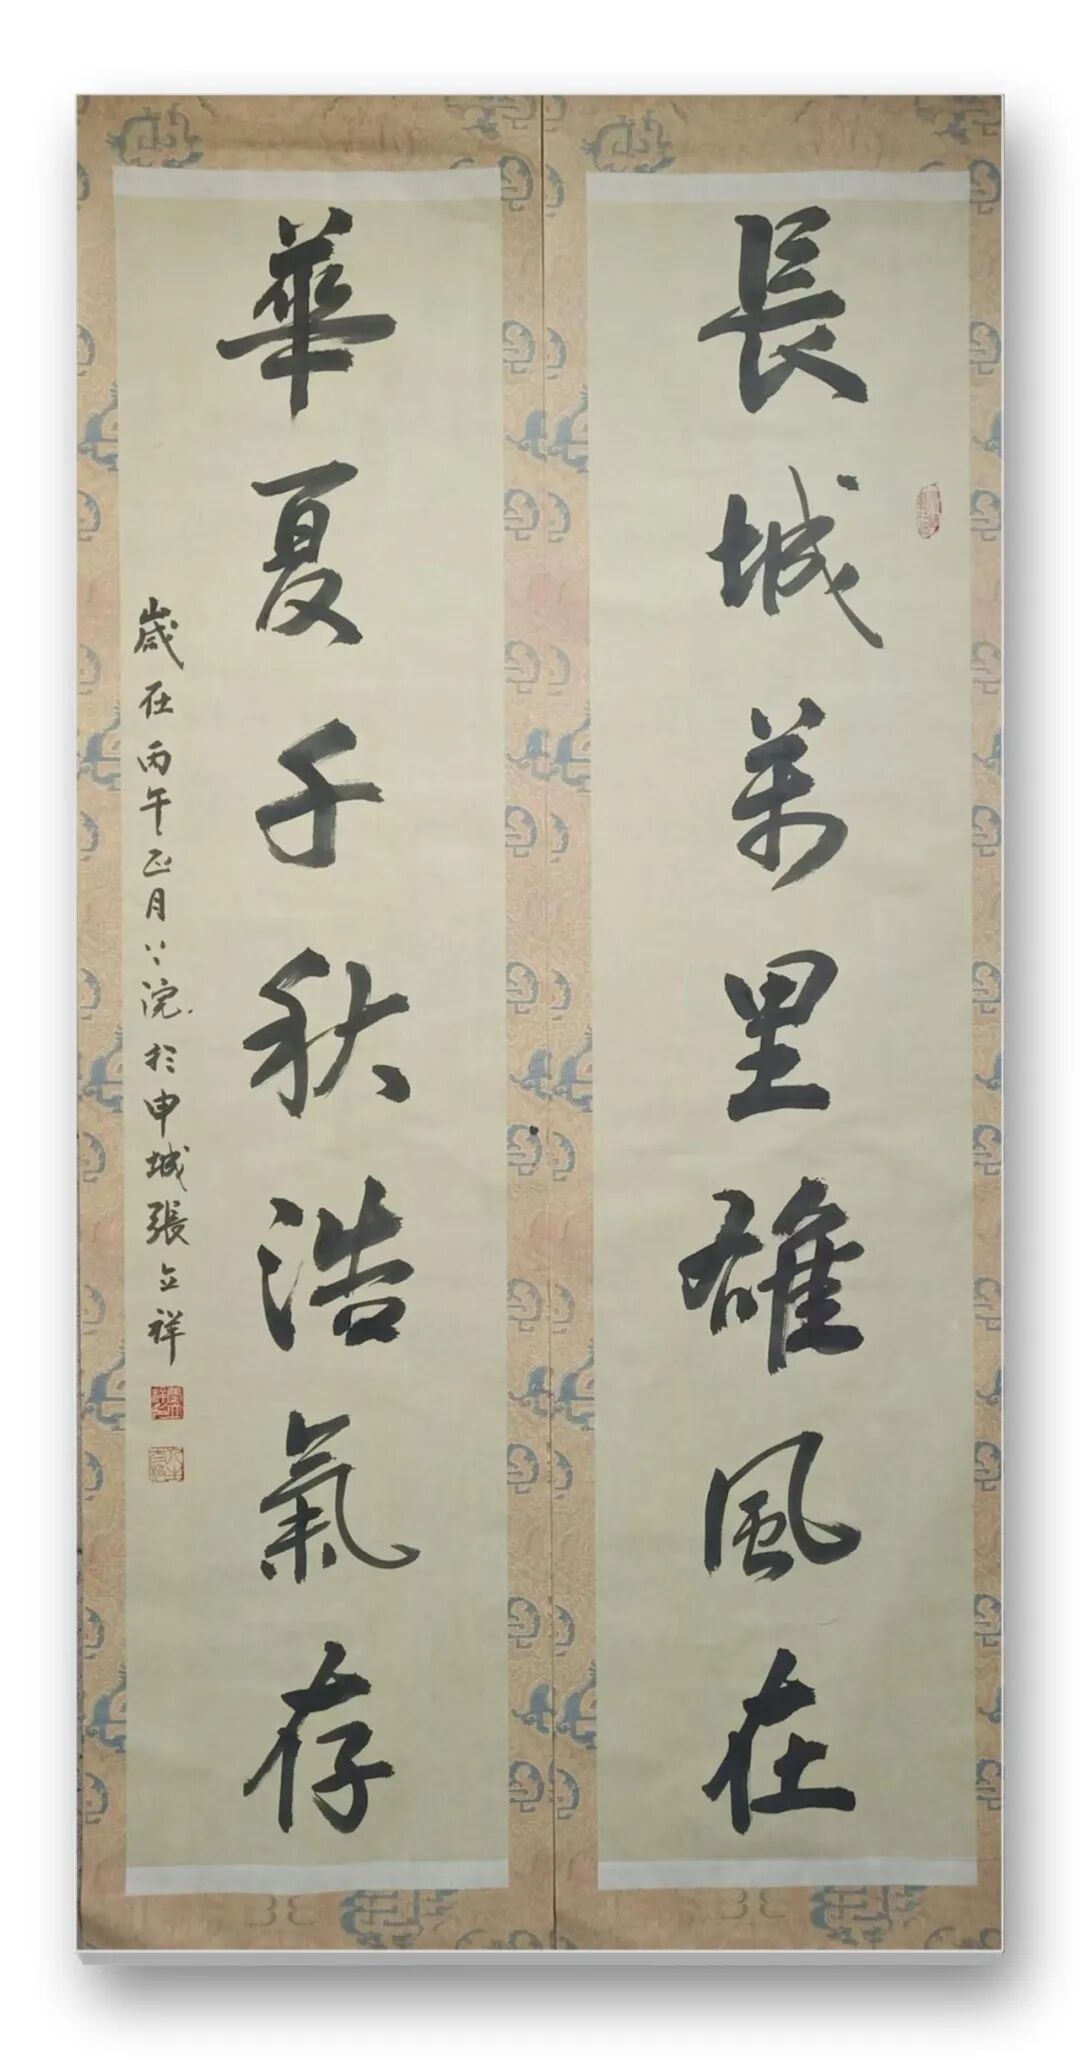 長城萬里雄風在
華夏千秋浩氣存
歲在丙午正月於申城張立祥